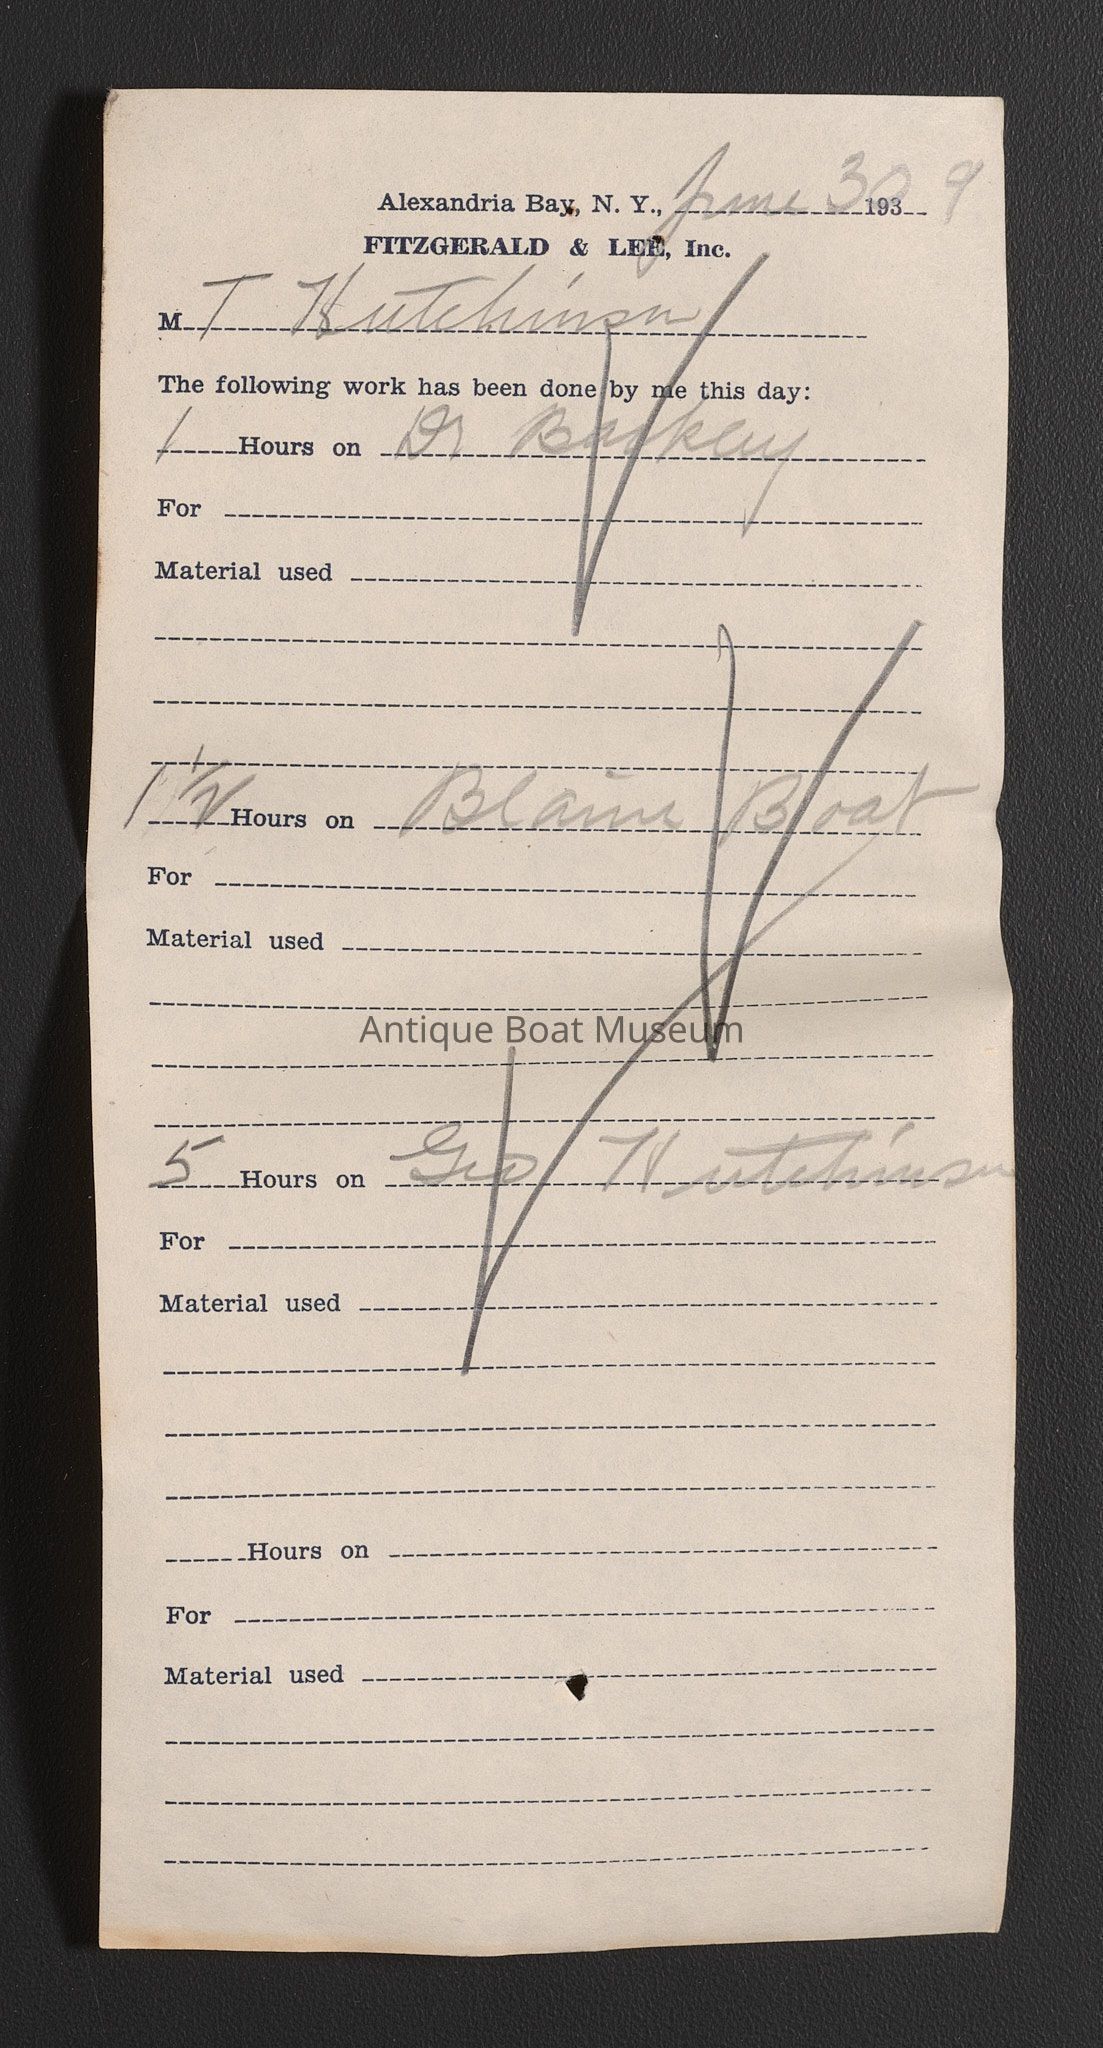 Alexandria Bay, N. Y., June 30 1939
FITZGERALD & LEE, Inc.
M T Hutchinson
The following work has been done by me this day:
1 Hours on Dr
For
Material used
1 1/2 Hours on Blaine Boat
For
Material used
Antique Boat Museum
5 Hours on Geo Hutchinson
For
Material used
Hours on
For
Material used